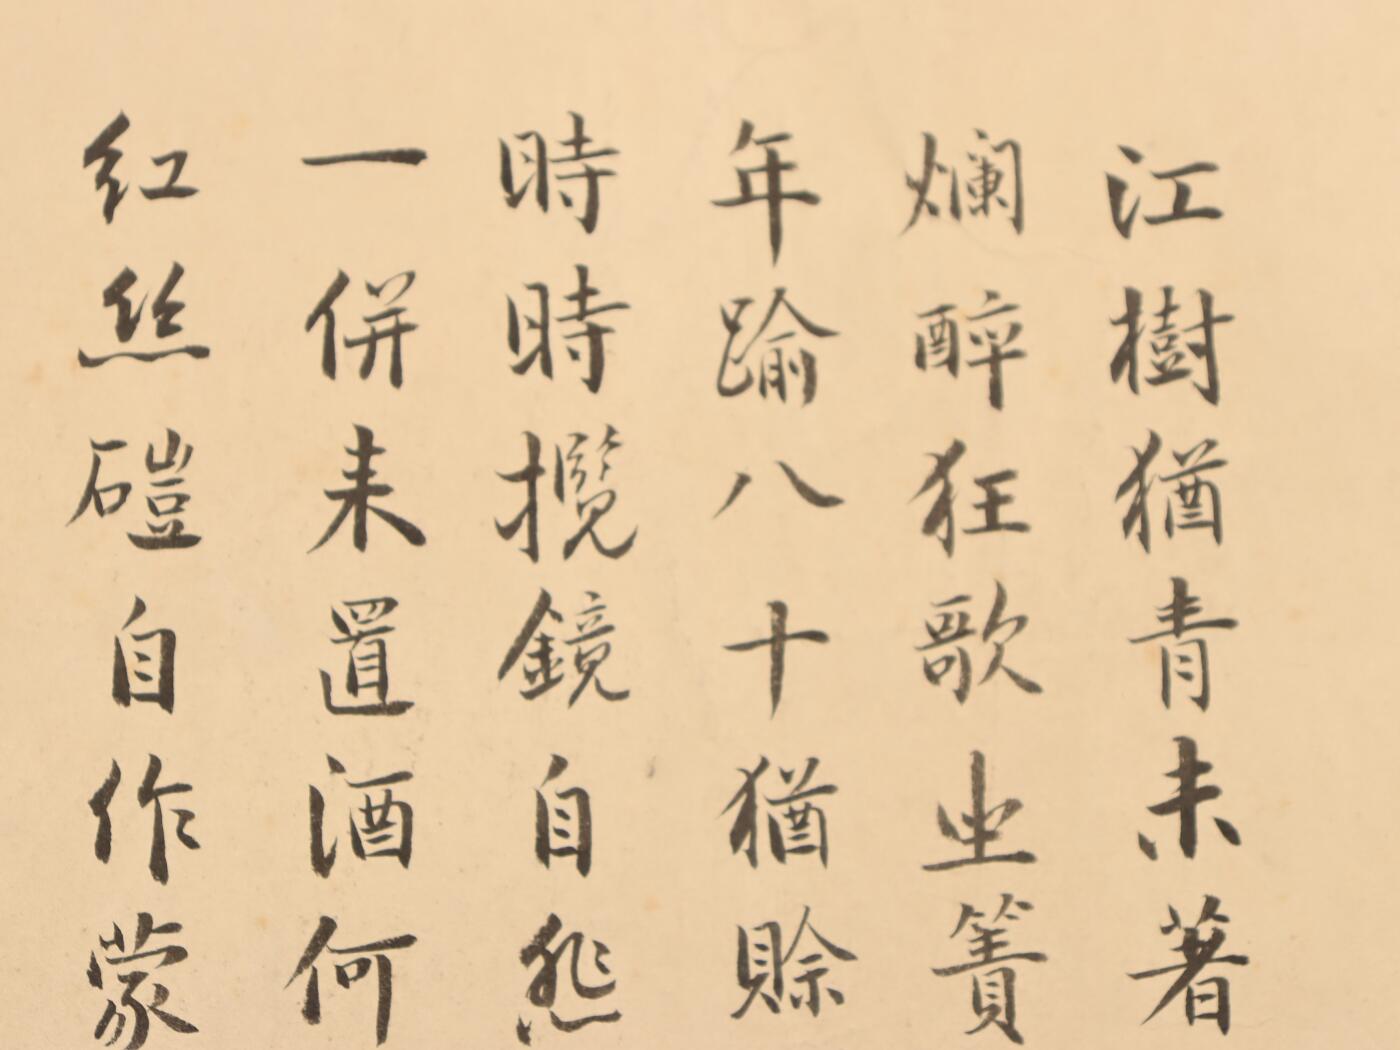 江樹猶青未著
爛醉狂歌坐簀
年踰八十猶賒
時時攬鏡自
一併来置酒何
紅絲磑自作蒙